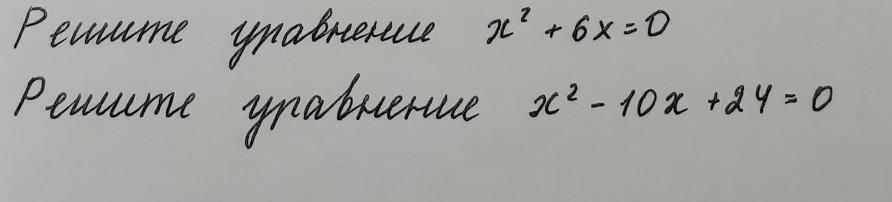 Решите уравнение x² + 6x = 0
Решите уравнение x² - 10x + 24 = 0